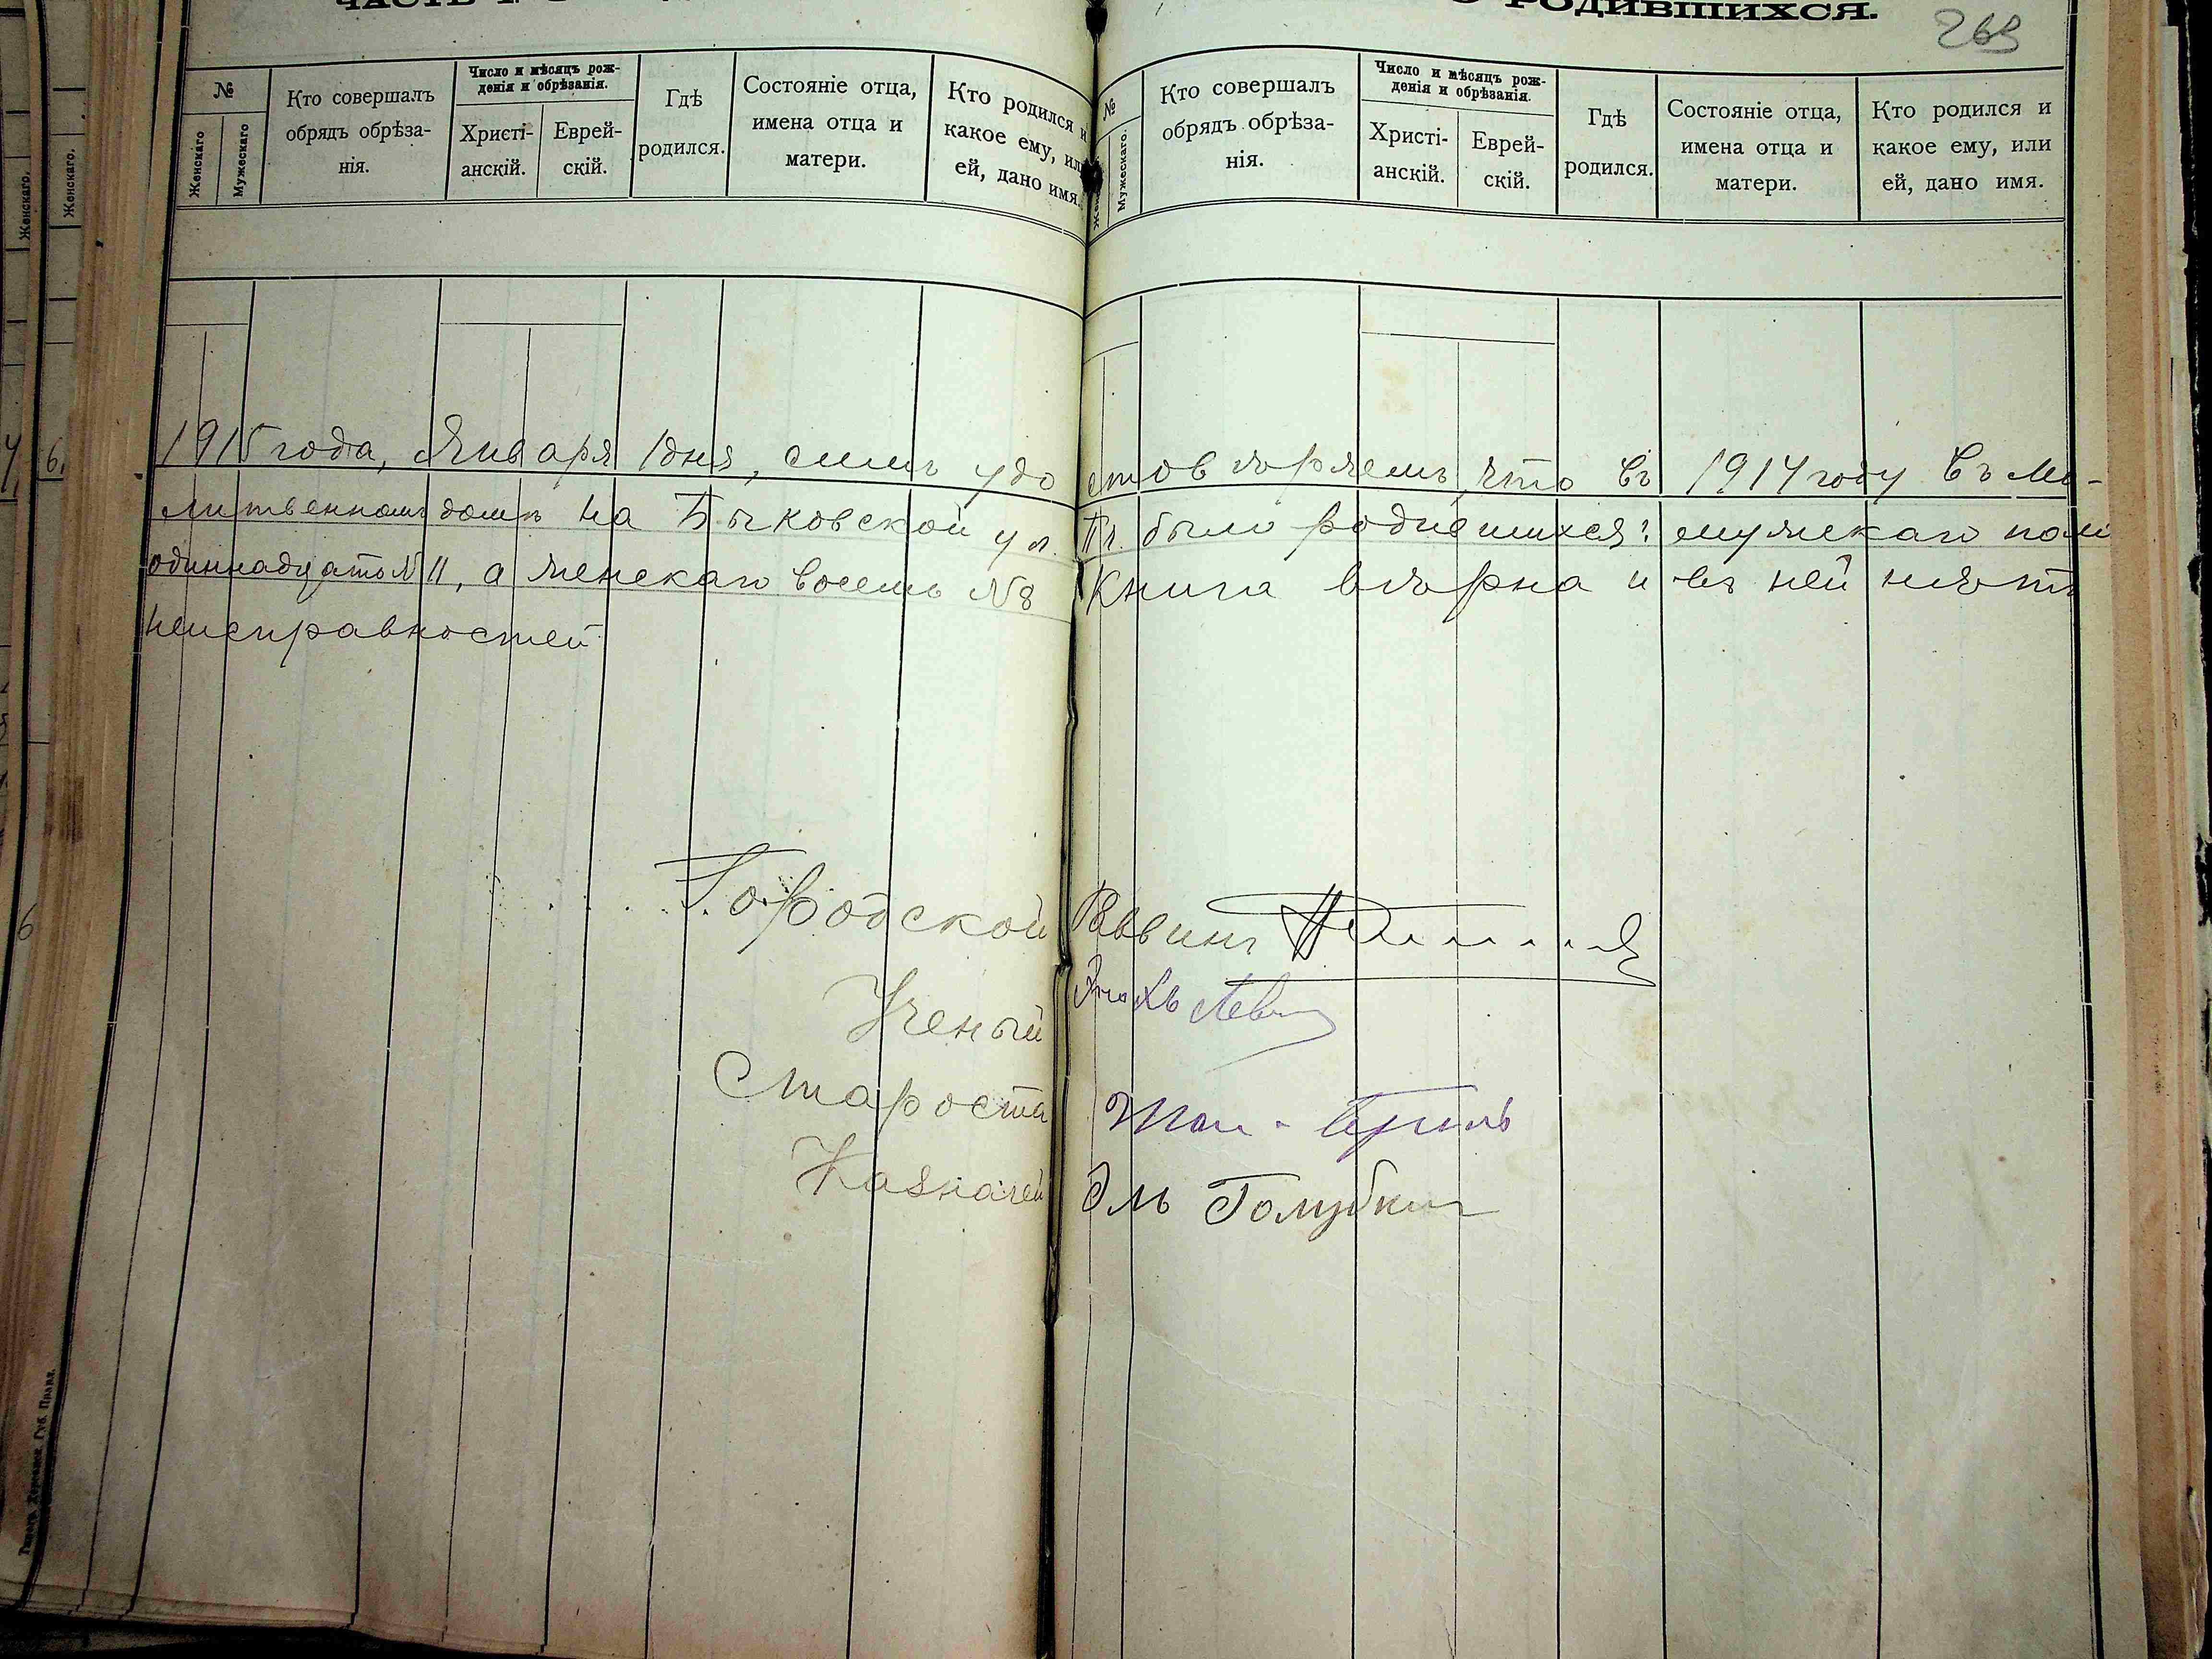 ЧАСТЬ I.
О РОДИВШИХСЯ.
269
№
Женскаго
Мужескаго
Кто совершалъ обрядъ обрѣза-
нія.
Число и мѣсяцъ рож-
денія и обрѣзанія.
Христі-
анскій.
Еврей-
скій.
Гдѣ
родился.
Состояніе отца,
имена отца и
матери.
Кто родился и
какое ему, или
ей, дано имя.
№
Мужескаго.
Кто совершалъ
обрядъ обрѣза-
нія.
Число и мѣсяцъ рож-
денія и обрѣзанія.
Христі-
анскій.
Еврей-
скій.
Гдѣ
родился.
Состояніе отца,
имена отца и
матери.
Кто родился и
какое ему, или
ей, дано имя.
Женскаго.
Женскаго.
1915 года, Января 1 дня, симъ удостовѣряемъ, что въ 1914 году въ Мо-
литвенномъ домѣ на Быковской ул. было родившихся: мужскаго пола
одиннадцать № 11, а женскаго восемь № 8 Книга вѣрна и въ ней нѣтъ
неисправностей
Городской Раввинъ
Ученый
Староста
Казначей Эль Голубкин